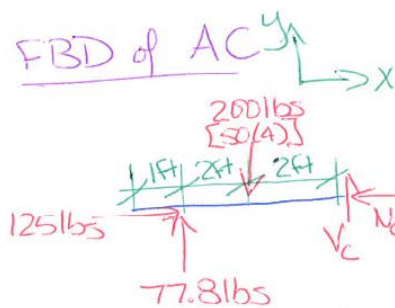 FBD of AC
y
x
200lbs
[50(4)]
1ft 2ft 2ft
125lbs
Vc
Nc
77.8lbs